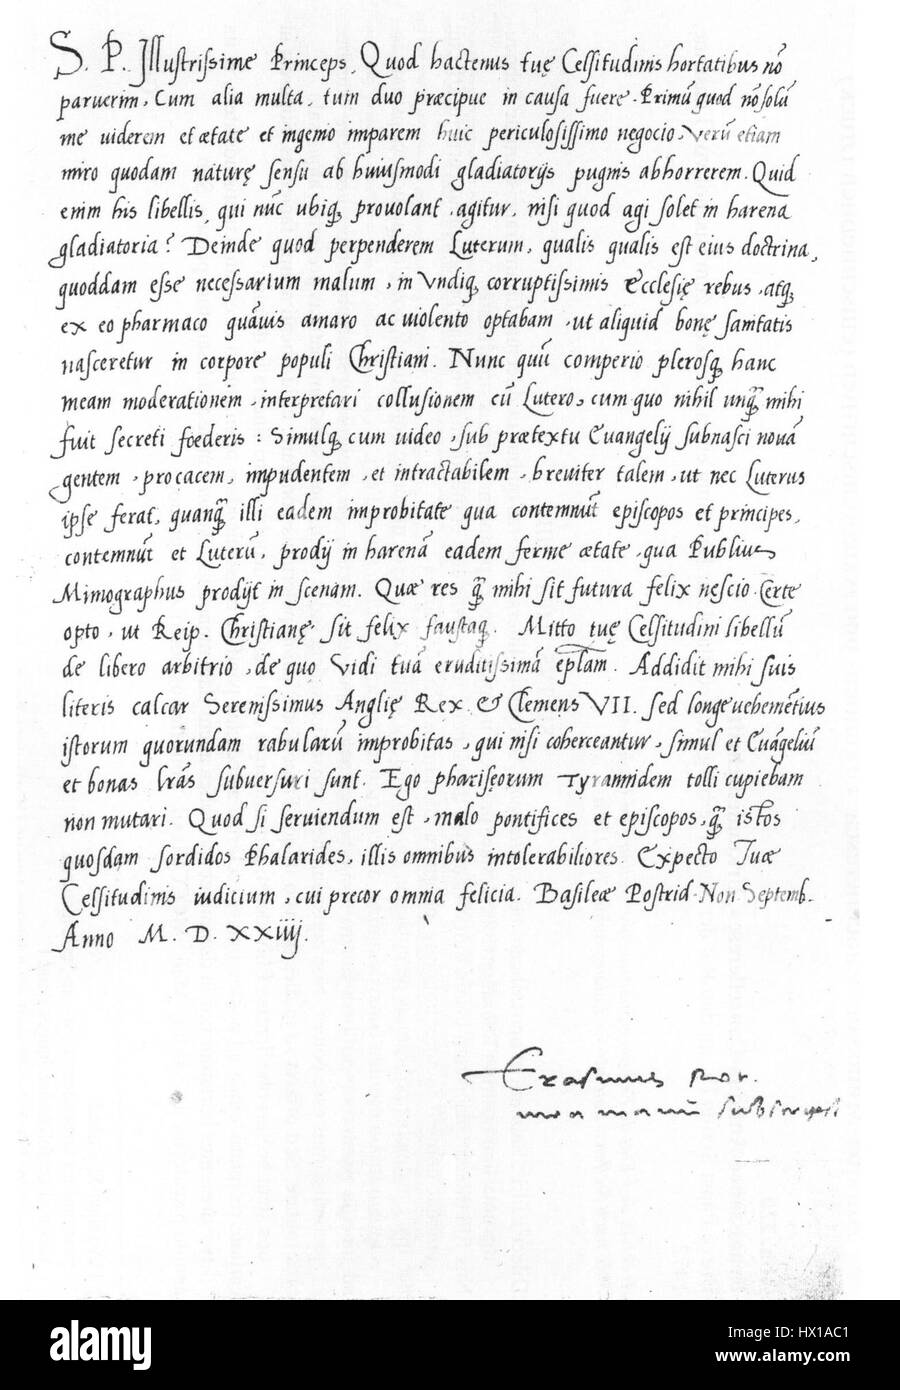 S. P. Illustrissime Princeps, Quod hactenus tuę Celsitudinis hortatibus nõ
paruerim, Cum alia multa, tum duo præcipue in causa fuere. Primũ quod nõ solũ
me uiderem et ætate et ingenio imparem huic periculosissimo negocio, Verũ etiam
miro quodam naturę sensu ab huiusmodi gladiatorijs pugnis abhorrerem. Quid
enim his libellis, qui nũc ubiq; prouolant, agitur, nisi quod agi solet in harena
gladiatoria? Deinde quod perpenderem Luterum, qualis qualis est eius doctrina,
quoddam esse necessarium malum, in Vndiq; corruptissimis Ecclesię rebus, atq;
ex eo pharmaco quãuis amaro ac uiolento optabam, ut aliquid bonę sanitatis
nasceretur in corpore populi Christiani. Nunc quũ comperio plerosq; hanc
meam moderationem, interpretari collusionem cũ Lutero, cum quo nihil unq̃ mihi
fuit secreti foederis: Simulq; cum uideo, sub prætextu Euangelij subnasci nouã
gentem, procacem, impudentem, et intractabilem, breuiter talem, ut nec Luterus
ipse ferat, quanq̃ illi eadem improbitate qua contemnũt episcopos et principes,
contemnũt et Luterũ, prodij in harenã eadem ferme ætate, qua Publius
Mimographus prodijt in scenam. Quæ res q̃ mihi sit futura felix nescio. Certe
opto, ut Reip. Christianę sit felix faustaq;. Mitto tuę Celsitudini libellũ
de libero arbitrio, de quo Vidi tuã eruditissimã ep̃lam. Addidit mihi suis
literis calcar Serenissimus Anglię Rex & Clemens VII. sed longe uehemẽtius
istorum quorundam rabularũ improbitas, qui nisi coherceantur, simul et Euãgeliũ
et bonas lr̃as subuersuri sunt. Ego pharisęorum Tyrannidem tolli cupiebam
non mutari. Quod si seruiendum est, malo pontifices et episcopos, q̃ istos
quosdam sordidos Phalarides, illis omnibus intolerabiliores. Expecto Tuæ
Celsitudinis iudicium, cui precor omnia felicia. Basileæ Postrid. Non Septemb.
Anno M. D. XXiiij.
Erasmus Rot.
mea manu subscripsi
alamy
HX1AC1
www.alamy.com